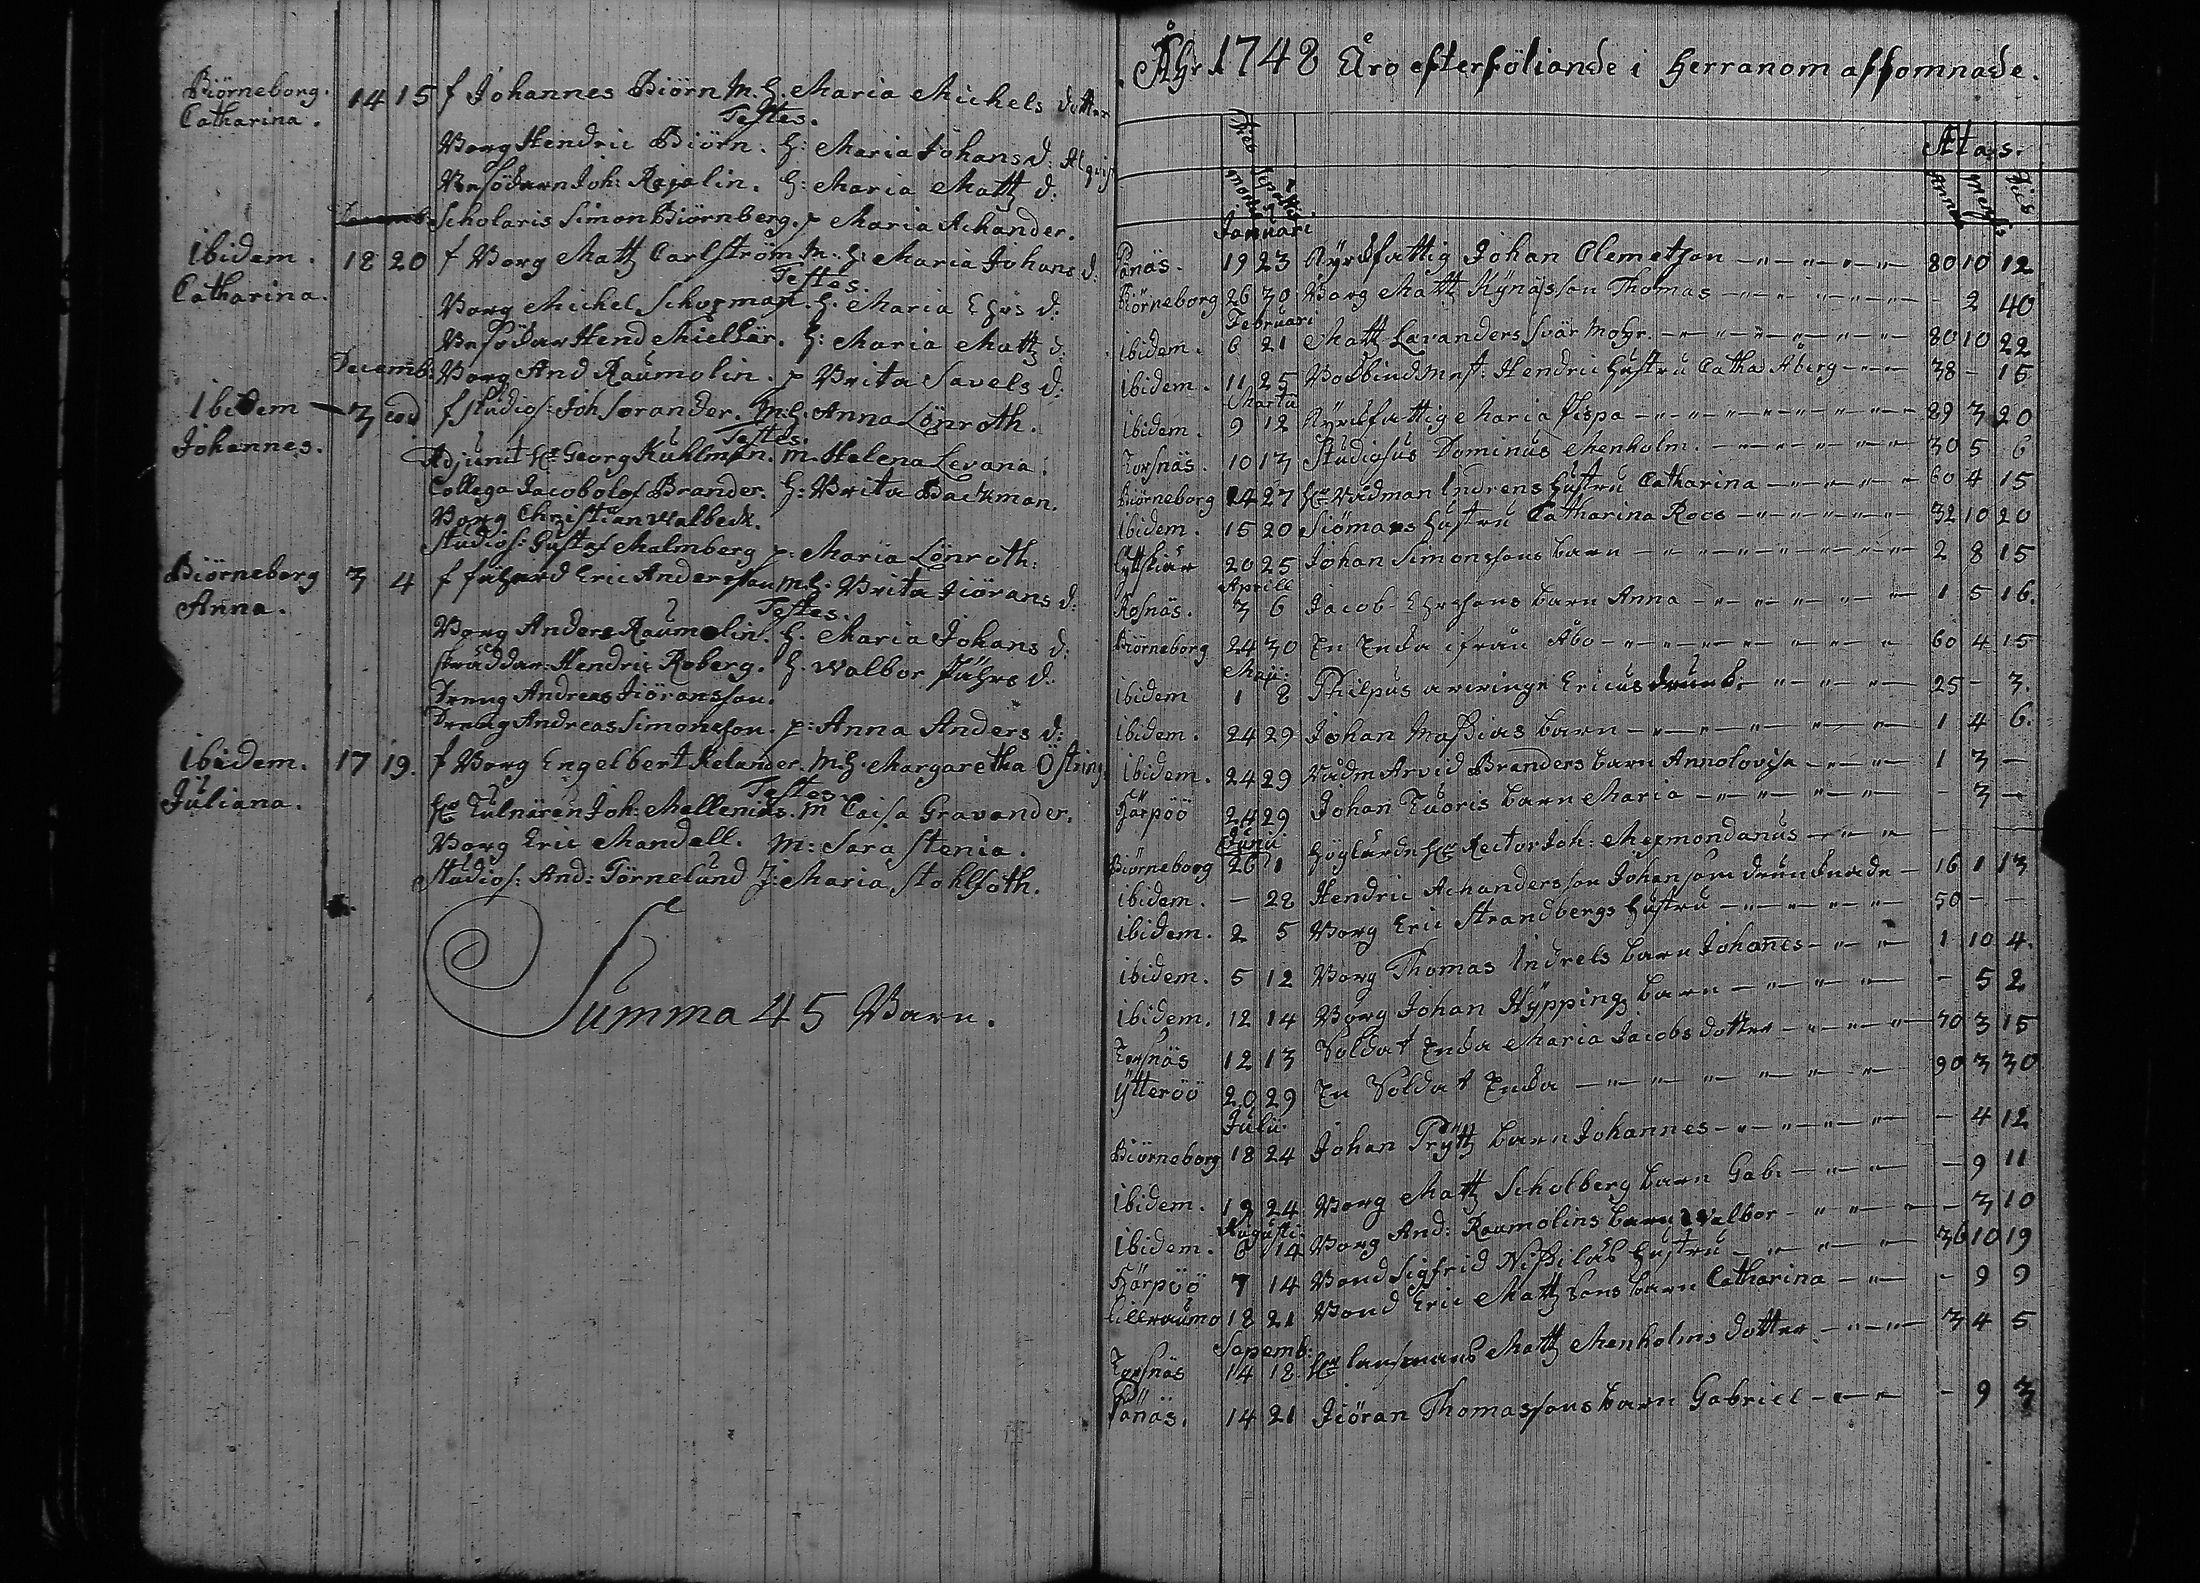 Biörneborg. 14 15 f Johannes Biörn M. H. Maria Michels dotter
Catharina. Testes.
Borg Hendric Biörn. H: Maria Johans d: Alquist
Besökarn Joh: Rojalin. H: Maria Matts d:
Scholaris Simon Biörnberg. p Maria Achander.
Ibidem. 18 20 f Borg Matz Carlström M. H: Maria Johans d:
Catharina. Testes.
Borg Michel Schopman. H. Maria Ehrs d:
Besökar Hend Mielkär. H: Maria Mattz d:
Decemb: Borg And Raumolin. p Brita Savels d:
Ibidem 3 eod f studios: Joh Sorander. M: H. Anna Lönroth.
Johannes. Testes.
Adjunct Hr Georg Kuhlman. M. Helena Levana.
Collega Jacob Olof Brander. H: Brita Backman.
Borg Christian Walbeck.
Studios: Gustaf Malmberg p: Maria Lönroth.
Biörneborg 3 4 f Eric Andersson M H: Brita Jiörans d:
Anna. Testes.
Borg Anders Raumolin. H. Maria Johans d:
skräddar: Hendric Roberg. H. Walbor d:
Dreng Andreas Jiöransson.
Dreng Andreas Simonsson. p: Anna Anders d:
Ibidem. 17 19. f Borg Engelbert Kelander. M. H. Margaretha Östring
Juliana. Testes.
Hr Tulnären Joh: Mellenius. M Caisa Gravander.
Borg Eric Mandell. M: Sara Stenia.
Studios: And: Törnelund J: Maria Stohlfoth.
Summa 45 Barn.
Åhr 1748 Äro efterföliande i Herranom afsomnade.
Ætatis.
Januari
19 23 Kyrkfattig Johan Clemetson 80 10 12
Biörneborg 26 30 Borg Mattz Kynässon Thomas - 2 40
Februari
Ibidem. 6 21 Matt Lavanders Svär Mohr. 80 10 22
Ibidem. 11 25 Bokbind Mest: Hendric Hustru Catha Åberg 38 - 15
Martii
Ibidem. 9 12 Kyrkfattig Maria 89 3 20
Torsnäs. 10 13 Studiosus Dominus Menholm. 30 5 6
Biörneborg 14 27 Hr Rådman Indrens Hustru Catharina 60 4 15
Ibidem. 15 20 Siömans Hustru Catharina Roos 32 10 20
20 25 Johan Simonssons barn 2 8 15
Aprill
Rosnäs. 3 6 Jacob Ehrssons barn Anna 1 5 16.
Biörneborg 24 30 En Enka ifrån Åbo 60 4 15
Maji:
Ibidem 1 8 Philpus Ericus 25 - 3.
Ibidem. 24 29 Johan Mathias barn 1 4 6.
Ibidem. 24 29 Rådm Arvid Branders barn Annolovisa 1 3 -
24 29 Johan Tuoris barn Maria - 3 -
Junii
Biörneborg 26 1 Höglärde Hr Rector Joh: Mexmondanus - - -
Ibidem. - 28 Hendric Achanders son Johan som drunknade 16 1 13
Ibidem. 2 5 Borg Eric Strandbergs Hustru 50 - -
Ibidem. 5 12 Borg Thomas Indrels barn Johanes 1 10 4.
Ibidem. 12 14 Borg Johan Hyppingz barn - 5 2
Torsnäs 12 13 Soldat Enka Maria Jacobs dotter 70 3 15
Ytteröö 20 29 En Soldat Enka 90 3 30
Julii.
Biörneborg 18 24 Johan Prytz barn Johannes - 4 12
Ibidem. 19 24 Borg Mattz Scholberg barn Gab: - 9 11
Augusti:
Ibidem. 6 14 Borg And: Raumolins barn Walbor - 3 10
7 14 Bond Sigfrid Hustru 36 10 19
Lillraumo 18 21 Bond Eric Mattzsons barn Catharina - 9 9
Sepemb:
Torsnäs 14 18 Hr Lansmans Mattz Menholms dotter 3 4 5
14 21 Jiöran Thomassons barn Gabriel - 9 3